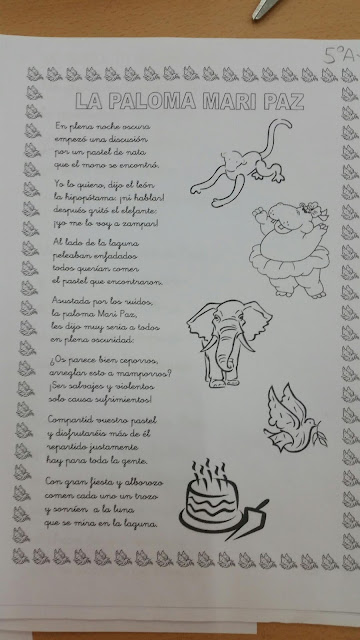 5ºA
LA PALOMA MARI PAZ
En plena noche oscura
empezó una discusión
por un pastel de nata
que el mono se encontró.
Yo lo quiero, dijo el león
la hipopótama: ¡ni hablar!
después gritó el elefante:
¡yo me lo voy a zampar!
Al lado de la laguna
peleaban enfadados
todos querían comer
el pastel que encontraron.
Asustada por los ruidos,
la paloma Mari Paz,
les dijo muy seria a todos
en plena oscuridad:
¿Os parece bien ceporros,
arreglar esto a mamporros?
¡Ser salvajes y violentos
solo causa sufrimientos!
Compartid vuestro pastel
y disfrutaréis más de él
repartido justamente
hay para toda la gente.
Con gran fiesta y alborozo
comen cada uno un trozo
y sonríen a la luna
que se mira en la laguna.